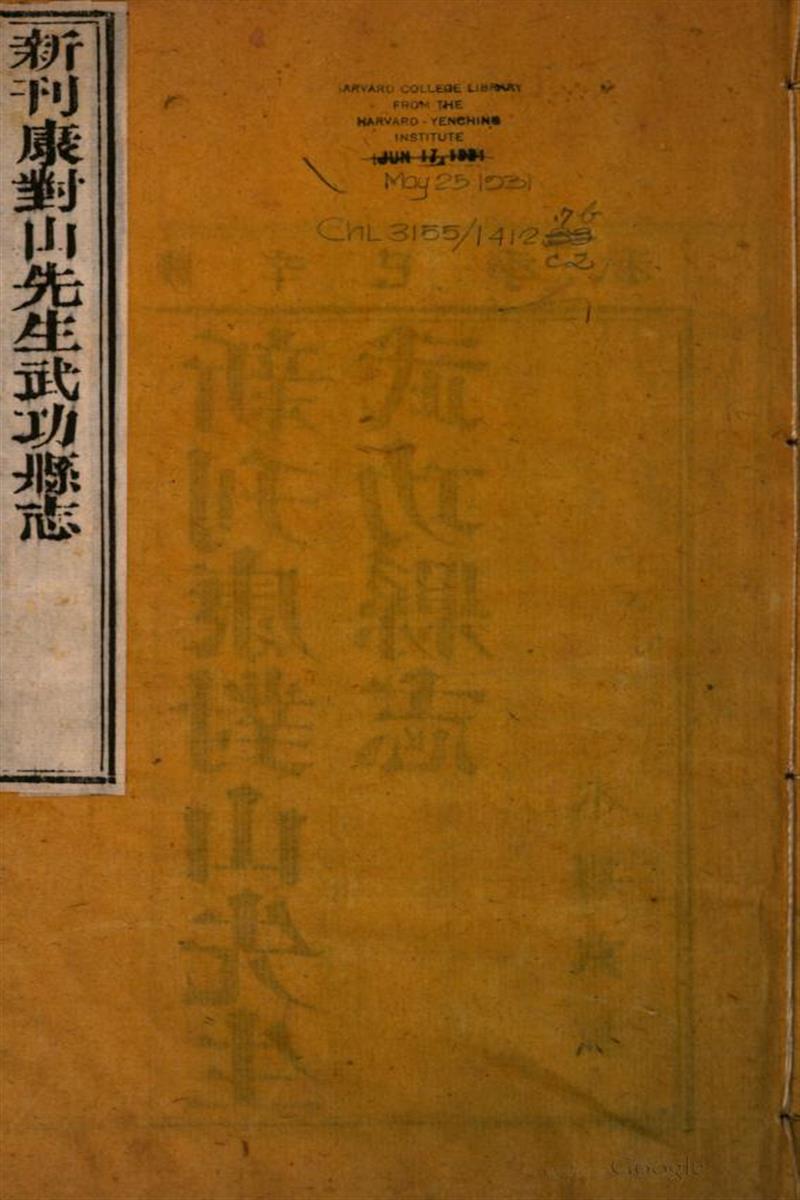 新刊康對山先生武功縣志
HARVARD COLLEGE LIBRARY
FROM THE
HARVARD-YENCHING
INSTITUTE
JUN 17, 1931
May 25 1931
ChL 3155/1412
.76
c2
武功縣志
新刊康對山先生
Google